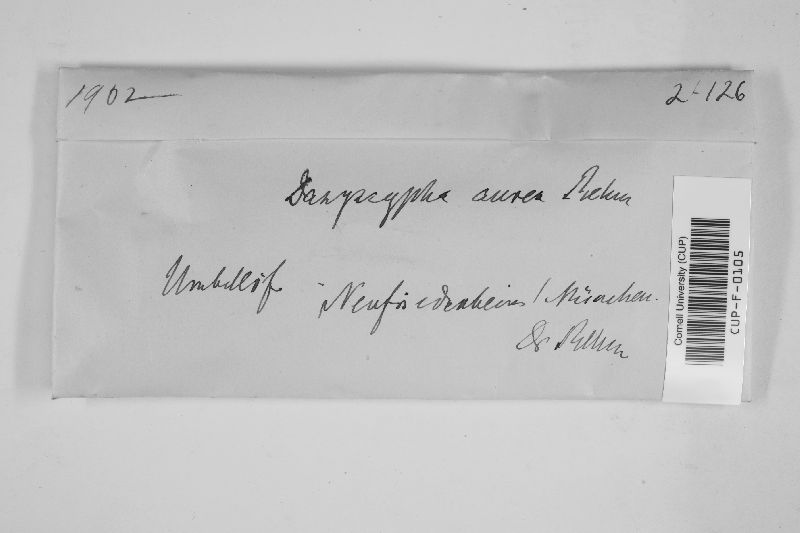 1902 2-126
Dasyscypha aurea Rehm
Umbellif Neufriedenheim / München.
Dr Rehm
Cornell University (CUP)
CUP-F-0105